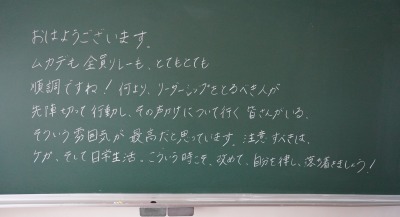 おはようございます。
ムカデも全員リレーも、とてもとても
順調ですね！何より、リーダーシップをとるべき人が
先陣切って行動し、その声かけについて行く皆さんがいる。
そういう雰囲気が最高だと思っています。注意すべきは、
ケガ、そして日常生活。こういう時こそ、改めて、自分を律し、落ち着きましょう！